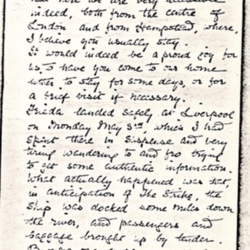 had here we are very accessible
indeed, both from the centre of
London and from Hampstead, where,
I believe you usually stay.
It would indeed be a proud joy for
us, to have you come to our home
either to stay for some days, or for
a brief visit if necessary.
Frieda landed safely at Liverpool
on Monday May 3rd, which I had
spent there in suspense and very
tiring wandering to and fro trying
to get some authentic information.
What actually happened was that,
in anticipation of the Strike, the
ship was docked some miles down
the river, and passengers and
baggage brought up by tender.